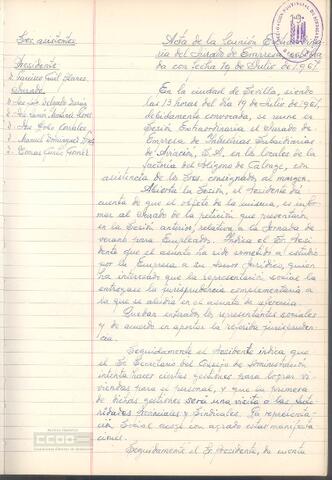 Sres. asistentes
Presidente
Acta de la Reunión Extraordina-
ria del Jurado de Empresa, celebra-
da con fecha 19 de Julio de 1961.
En la ciudad de Sevilla, siendo
las 13 horas del día 19 de Julio de 1961,
debidamente convocado, se reune en
Sesión Extraordinaria el Jurado de
Empresa de Industrias Subsidiarias
de Aviación, S.A. en los locales de la
Factoría del Polígono de
asistencia de los Sres. consignados al margen.
Abierta la Sesión, el Presidente dá
cuenta de que el objeto de la misma, es infor-
mar al Jurado de la petición que presentaron
en la Sesión anterior, relativa a la Jornada de
verano para Empleados. Indica el Sr. Presi-
dente que el asunto ha sido sometido a estudio
por la Empresa a su Asesor Jurídico, quien
ha interesado que la representación social le
entregase la jurisprudencia complementaria a
la que se aludía en el asunto de referencia.
Quedan enterados los representantes sociales
y de acuerdo en aportar la referida jurispruden-
cia.
Seguidamente el Presidente indica que
el Sr. Secretario del Consejo de Administración
intenta hacer ciertas gestiones para lograr vi-
viendas para el personal, y que la primera
de dichas gestiones será una visita a las Auto-
ridades Provinciales y Sindicales. La representa-
ción Social acoge con agrado estas manifesta-
ciones.
Seguidamente el Sr. Presidente, da cuenta